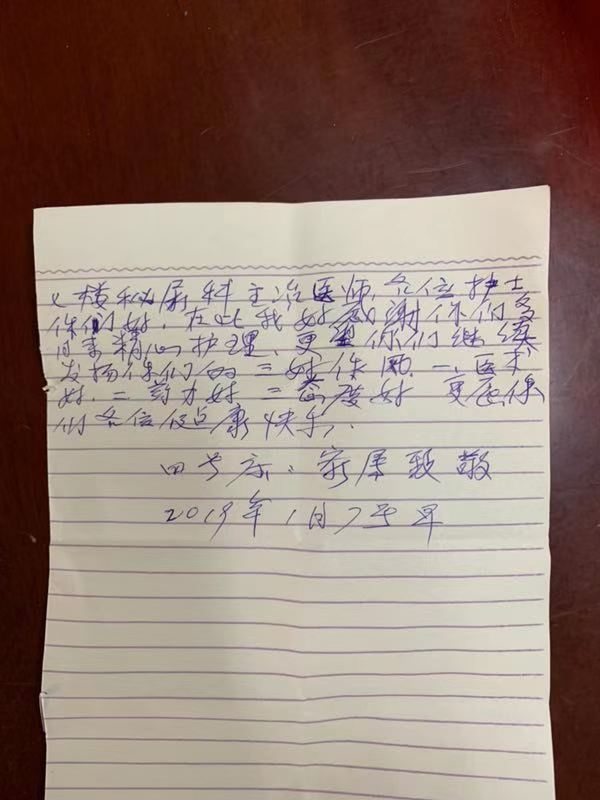 楼秘尿科主治医师,各位护士
你们好,在此我好感谢你们多
日来精心护理,更望你们继续
发扬你们的三好作风,一、医术
好,二药力好三态度好 更愿你
们各位健康快乐,
四号床:家属致敬
2019年1月7号早